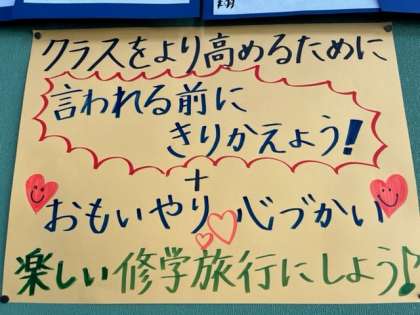 クラスをより高めるために
言われる前に
きりかえよう!
+
おもいやり 心づかい
楽しい修学旅行にしよう♪